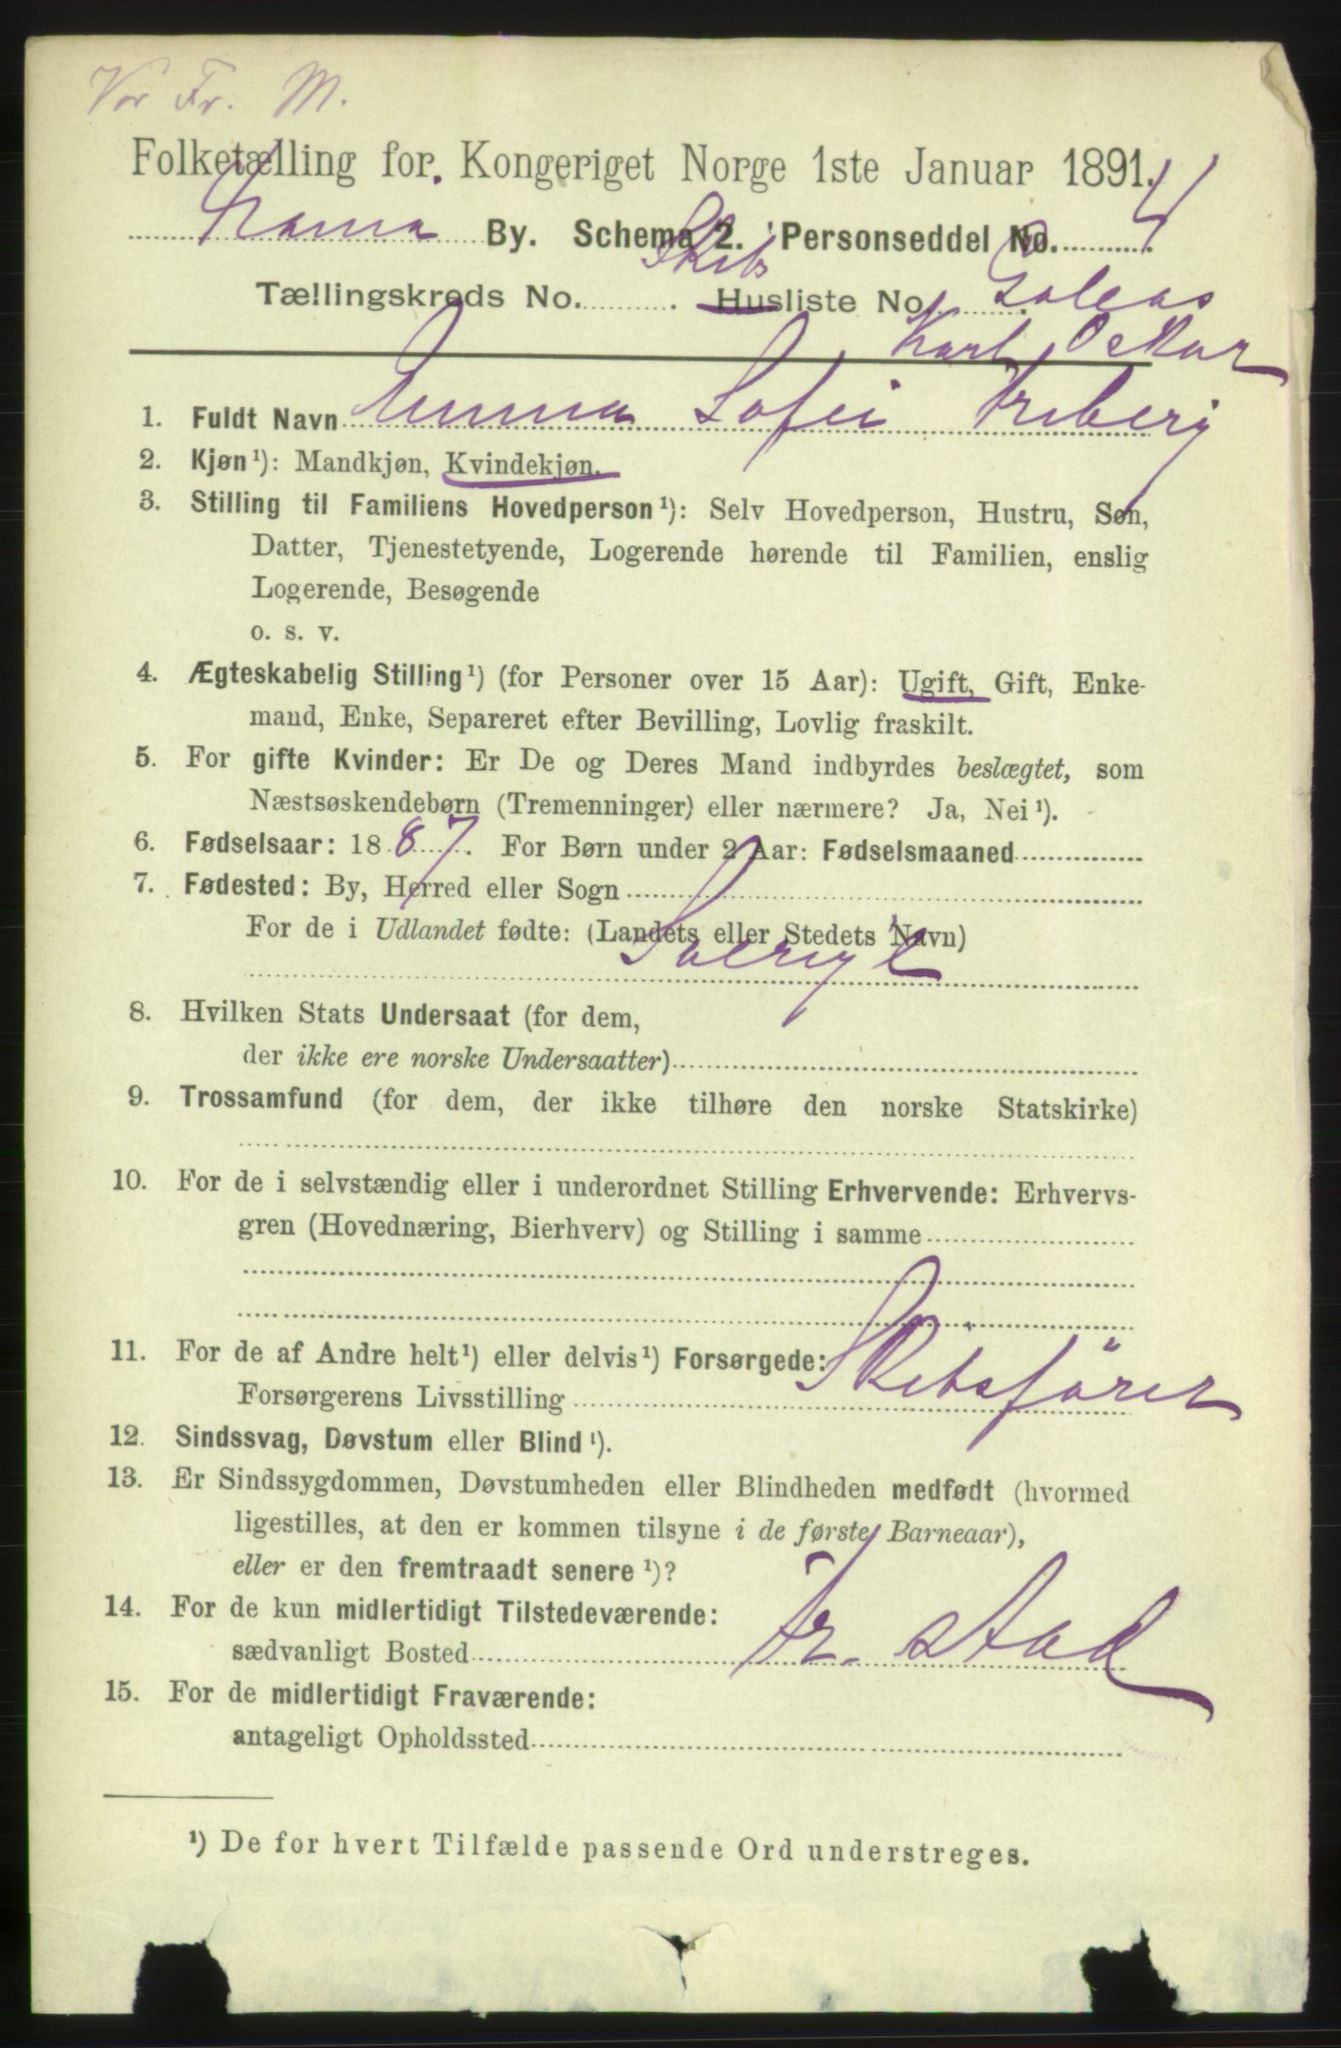 Vor Fr. M.
Folketælling for Kongeriget Norge 1ste Januar 1891.
By. Schema 2. Personseddel No. 4
Skibs
Tællingskreds No. Husliste No.
Karl Oskar
1. Fuldt Navn Emma Sofei Friberg
2. Kjøn ¹): Mandkjøn, Kvindekjøn.
3. Stilling til Familiens Hovedperson ¹): Selv Hovedperson, Hustru, Søn,
Datter, Tjenestetyende, Logerende hørende til Familien, enslig
Logerende, Besøgende
o. s. v.
4. Ægteskabelig Stilling ¹) (for Personer over 15 Aar): Ugift, Gift, Enke-
mand, Enke, Separeret efter Bevilling, Lovlig fraskilt.
5. For gifte Kvinder: Er De og Deres Mand indbyrdes beslægtet, som
Næstsøskendebørn (Tremenninger) eller nærmere? Ja, Nei ¹).
6. Fødselsaar: 1887. For Børn under 2 Aar: Fødselsmaaned
7. Fødested: By, Herred eller Sogn
For de i Udlandet fødte: (Landets eller Stedets Navn)
Sverige
8. Hvilken Stats Undersaat (for dem,
der ikke ere norske Undersaatter)
9. Trossamfund (for dem, der ikke tilhøre den norske Statskirke)
10. For de i selvstændig eller i underordnet Stilling Erhvervende: Erhvervs-
gren (Hovednæring, Bierhverv) og Stilling i samme
11. For de af Andre helt ¹) eller delvis ¹) Forsørgede:
Forsørgerens Livsstilling Skibsförer
12. Sindssvag, Døvstum eller Blind ¹).
13. Er Sindssygdommen, Døvstumheden eller Blindheden medfødt (hvormed
ligestilles, at den er kommen tilsyne i de første Barneaar),
eller er den fremtraadt senere ¹)?
14. For de kun midlertidigt Tilstedeværende:
sædvanligt Bosted Fr. stad
15. For de midlertidigt Fraværende:
antageligt Opholdssted
¹) De for hvert Tilfælde passende Ord understreges.